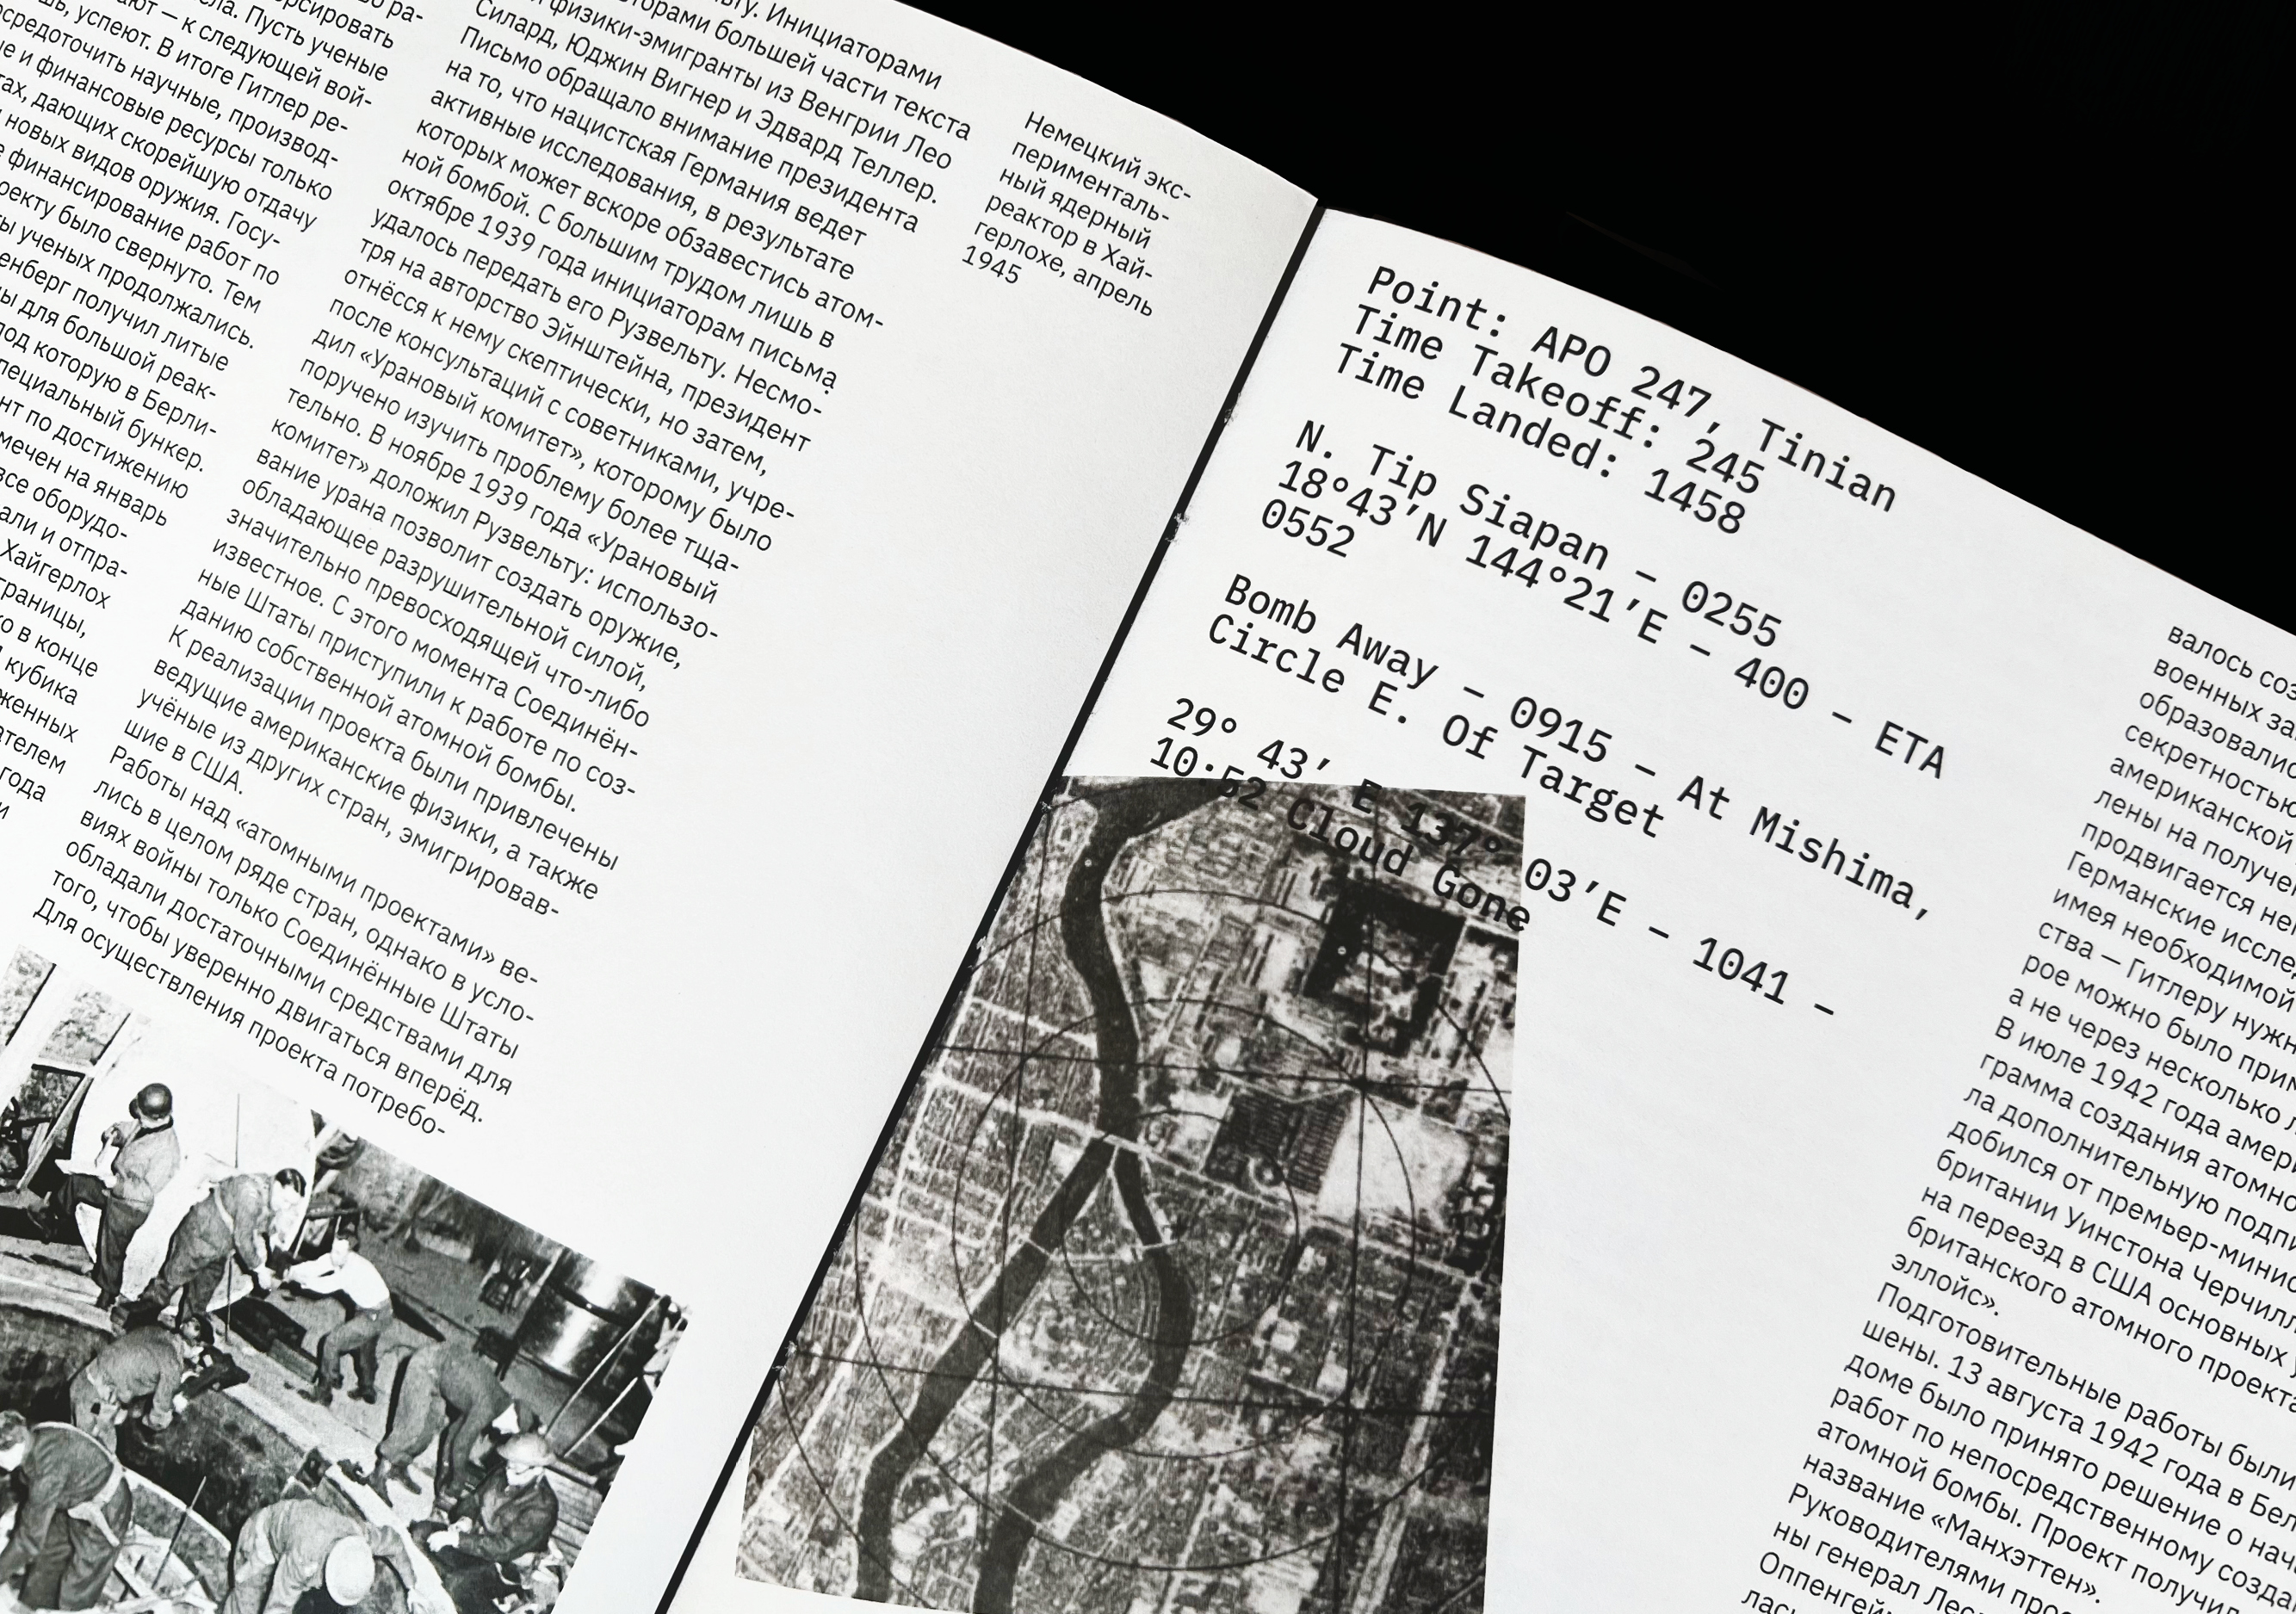 сировать
ла. Пусть ученые
– к следующей вой-
успеют. В итоге Гитлер ре-
средоточить научные, производ-
и финансовые ресурсы только
дающих скорейшую отдачу
новых видов оружия. Госу-
финансирование работ по
было свернуто. Тем
ученых продолжались.
получил литые
для большой реак-
которую в Берли-
специальный бункер.
по достижению
на январь
все оборудо-
и отпра-
Хайгерлох
границы,
в конце
кубика
года
Инициаторами
большей части текста
физики-эмигранты из Венгрии Лео
Силард, Юджин Вигнер и Эдвард Теллер.
Письмо обращало внимание президента
на то, что нацистская Германия ведет
активные исследования, в результате
которых может вскоре обзавестись атом-
ной бомбой. С большим трудом лишь в
октябре 1939 года инициаторам письма
удалось передать его Рузвельту. Несмо-
тря на авторство Эйнштейна, президент
отнёсся к нему скептически, но затем,
после консультаций с советниками, учре-
дил «Урановый комитет», которому было
поручено изучить проблему более тща-
тельно. В ноябре 1939 года «Урановый
комитет» доложил Рузвельту: использо-
вание урана позволит создать оружие,
обладающее разрушительной силой,
значительно превосходящей что-либо
известное. С этого момента Соединён-
ные Штаты приступили к работе по соз-
данию собственной атомной бомбы.
К реализации проекта были привлечены
ведущие американские физики, а также
учёные из других стран, эмигрировав-
шие в США.
Работы над «атомными проектами» ве-
лись в целом ряде стран, однако в усло-
виях войны только Соединённые Штаты
обладали достаточными средствами для
того, чтобы уверенно двигаться вперёд.
Для осуществления проекта потребо-
Немецкий экс-
перименталь-
ный ядерный
реактор в Хай-
герлохе, апрель
1945
Point: APO 247, Tinian
Time Takeoff: 245
Time Landed: 1458
N. Tip Siapan – 0255
18°43’N 144°21’E – 400 – ETA
0552
Bomb Away – 0915 – At Mishima,
Circle E. Of Target
29° 43’ E 137° 03’E – 1041 –
10:52 Cloud Gone
валось соз
военных за
образовалис
секретностью
американской
лены на получен
продвигается
Германские иссле
имея необходимой
ства – Гитлеру нужн
рое можно было прим
а не через несколько
В июле 1942 года амери
грамма создания атомно
ла дополнительную подпи
добился от премьер-минис
британии Уинстона Черчилл
на переезд в США основных
британского атомного проекта
эллойс».
Подготовительные работы были
шены. 13 августа 1942 года в Бел
доме было принято решение о нач
работ по непосредственному созда
атомной бомбы. Проект получил
название «Манхэттен».
Руководителями про
ны генерал Лес
Оппенгей